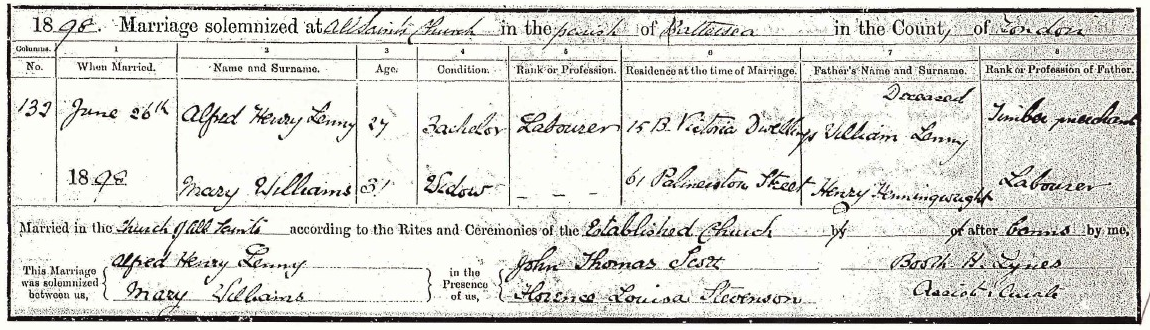 1898. Marriage solemnized at All Saints Church in the parish of Battersea in the County of London
Columns. 1 2 3 4 5 6 7 8
No. When Married. Name and Surname. Age. Condition. Rank or Profession. Residence at the time of Marriage. Father's Name and Surname. Rank or Profession of Father.
Deceased
132 June 26th Alfred Henry Lenny 27 Bachelor Labourer 15 B. Victoria Dwellings William Lenny Timber merchant
1898 Mary Williams 31 Widow — — 61 Palmerston Street Henry Henningwright Labourer
Married in the Church of All Saints according to the Rites and Ceremonies of the Established Church by or after banns by me,
This Marriage was solemnized between us, Alfred Henry Lenny in the Presence of us, John Thomas Scott Booth H. Lynes
Mary Williams Florence Louisa Stevinson Assist. Curate